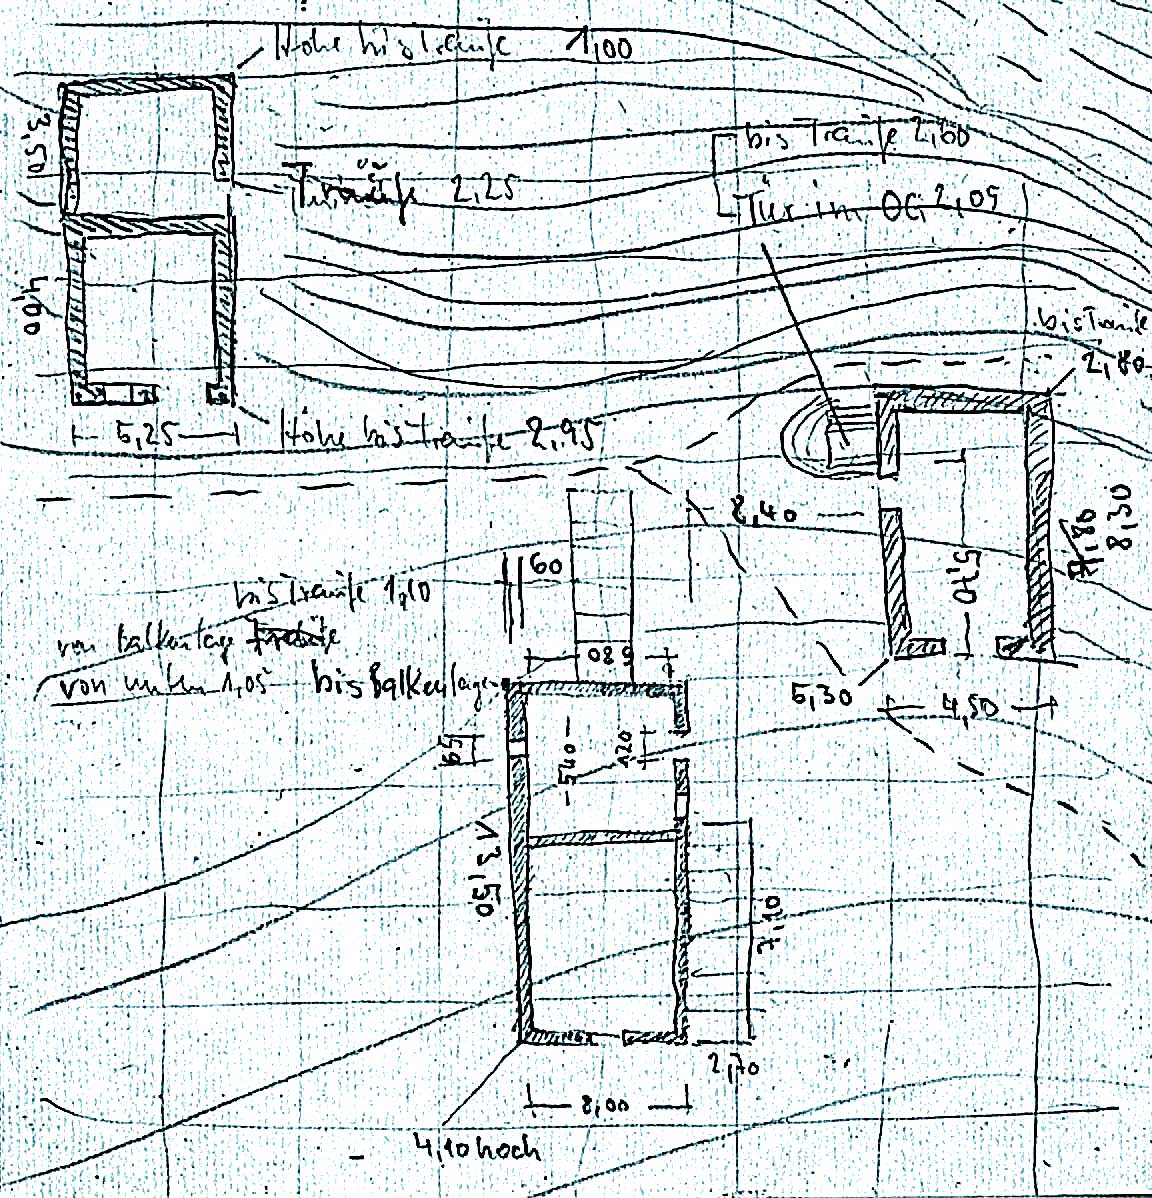 Höhe bis Traufe 1,00
3,50
Traufe 2,25
bis Traufe 2,60
Tür im OG 2,05
4,60
bis Traufe
2,80
5,25
Höhe bis Traufe 2,95
8,40
5,70
8,30
60
bis Traufe 1,10
von Balkenlage
von unten 1,05 bis Balkenlage
680
5,30
4,50
65
540
120
13,50
7,10
2,70
8,00
4,10 hoch